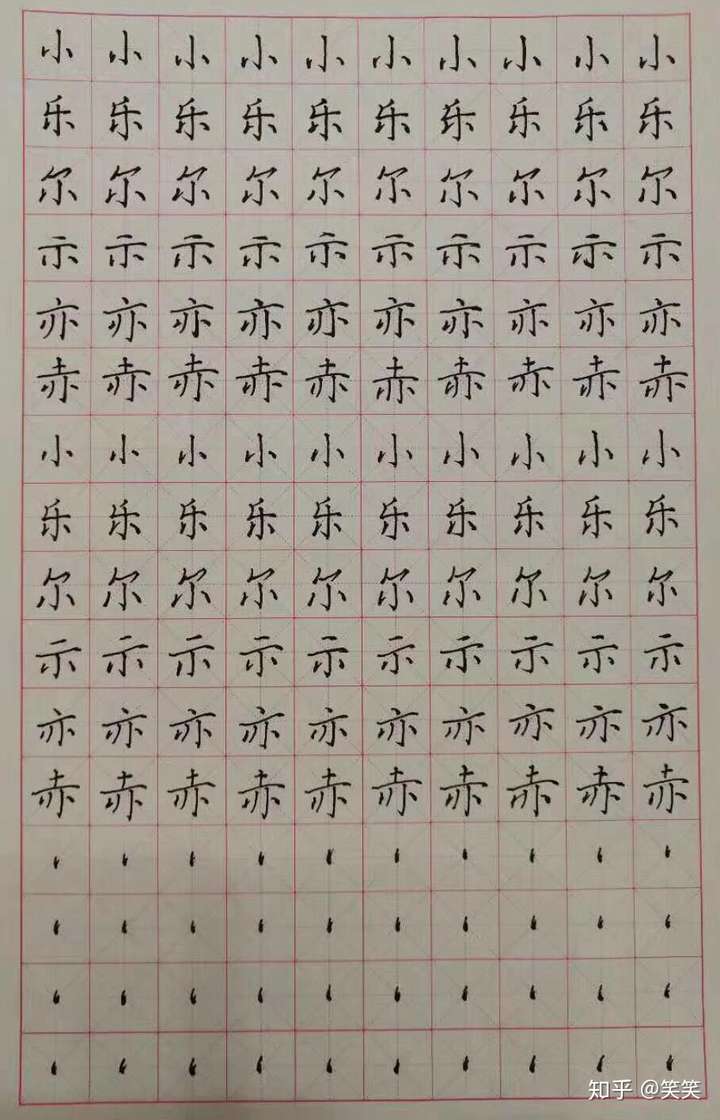 小小小小小小小小小小
乐乐乐乐乐乐乐乐乐乐
尔尔尔尔尔尔尔尔尔尔
示示示示示示示示示示
亦亦亦亦亦亦亦亦亦亦
赤赤赤赤赤赤赤赤赤赤
小小小小小小小小小小
乐乐乐乐乐乐乐乐乐乐
尔尔尔尔尔尔尔尔尔尔
示示示示示示示示示示
亦亦亦亦亦亦亦亦亦亦
赤赤赤赤赤赤赤赤赤赤
知乎 @笑笑